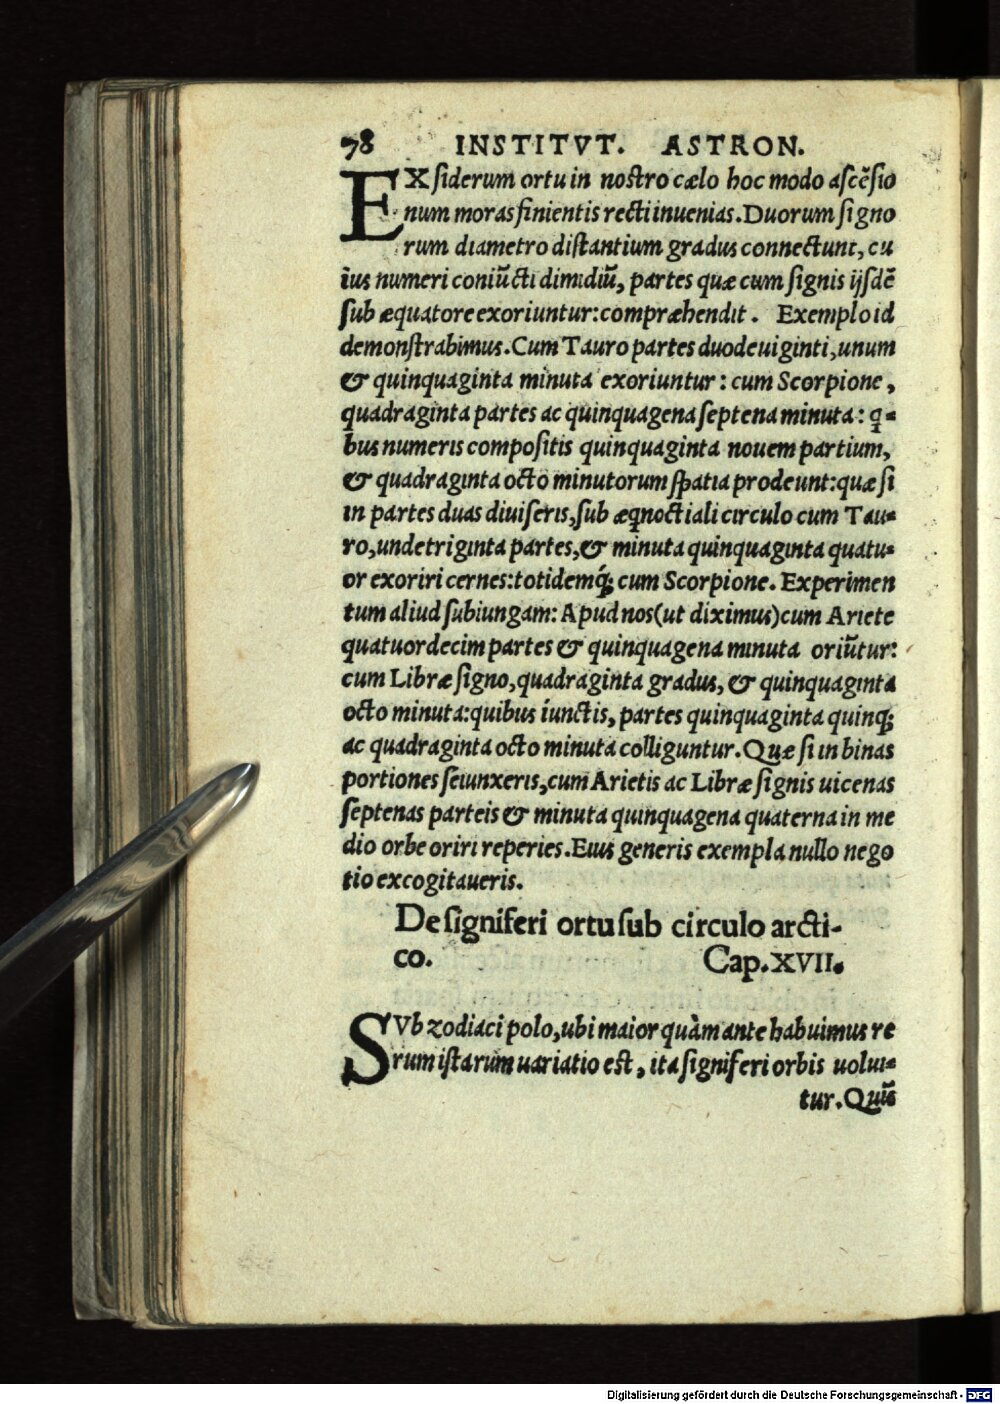 78 INSTITVT. ASTRON.
EX siderum ortu in nostro cælo hoc modo ascēsio
num moras finientis recti inuenias. Duorum signo
rum diametro distantium gradus connectunt, cu
ius numeri coniūcti dimidiū, partes quæ cum signis ijsdē
sub æquatore exoriuntur: compræhendit. Exemplo id
demonstrabimus. Cum Tauro partes duodeuiginti, unum
& quinquaginta minuta exoriuntur: cum Scorpione,
quadraginta partes ac quinquagena septena minuta: q̄-
bus numeris compositis quinquaginta nouem partium,
& quadraginta octo minutorum spatia prodeunt: quæ si
in partes duas diuiseris, sub æq̄noctiali circulo cum Tau-
ro, undetriginta partes, & minuta quinquaginta quatu-
or exoriri cernes: totidemq́; cum Scorpione. Experimen
tum aliud subiungam: Apud nos (ut diximus) cum Ariete
quatuordecim partes & quinquagena minuta oriūtur:
cum Libræ signo, quadraginta gradus, & quinquaginta
octo minuta: quibus iunctis, partes quinquaginta quinq;
ac quadraginta octo minuta colliguntur. Quæ si in binas
portiones seiunxeris, cum Arietis ac Libræ signis uicenas
septenas parteis & minuta quinquagena quaterna in me
dio orbe oriri reperies. Eius generis exempla nullo nego
tio excogitaueris.
De signiferi ortu sub circulo arcti-
co. Cap. XVII.
SVb zodiaci polo, ubi maior quàm ante habuimus re
rum istarum uariatio est, ita signiferi orbis uolui-
tur. Quū
Digitalisierung gefördert durch die Deutsche Forschungsgemeinschaft - DFG